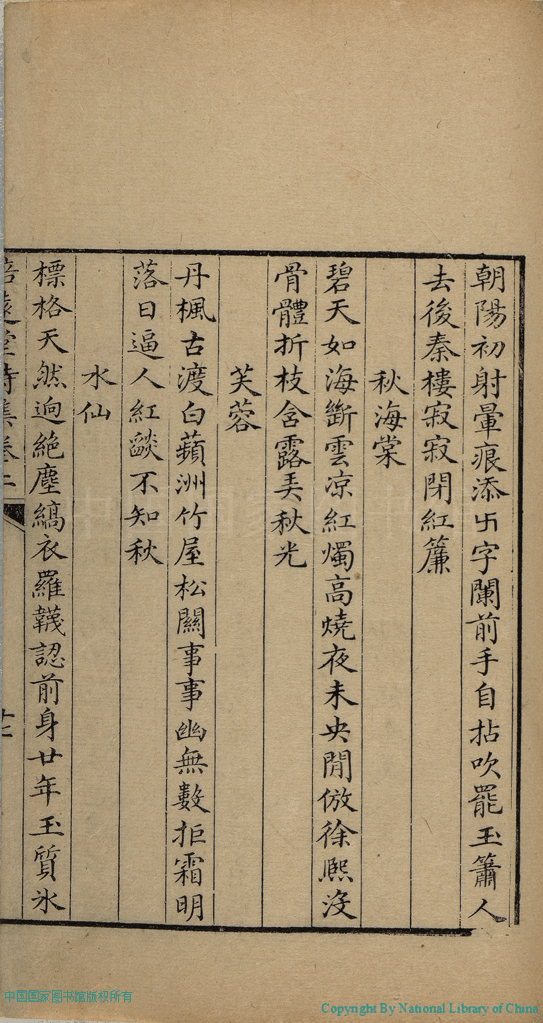 朝陽初射暈痕添卐字闌前手自拈吹罷玉簫人
去後秦樓寂寂閉紅簾
秋海棠
碧天如海斷雲凉紅燭高燒夜未央閒倣徐熈沒
骨體折枝含露弄秋光
芙蓉
丹楓古渡白蘋洲竹屋松關事事幽無數拒霜明
落日逼人紅燄不知秋
水仙
標格天然逈絕塵縞衣羅韈認前身廿年玉質氷
培遠堂詩集卷二
廿二
中国国家图书馆版权所有
Copyright By National Library of China